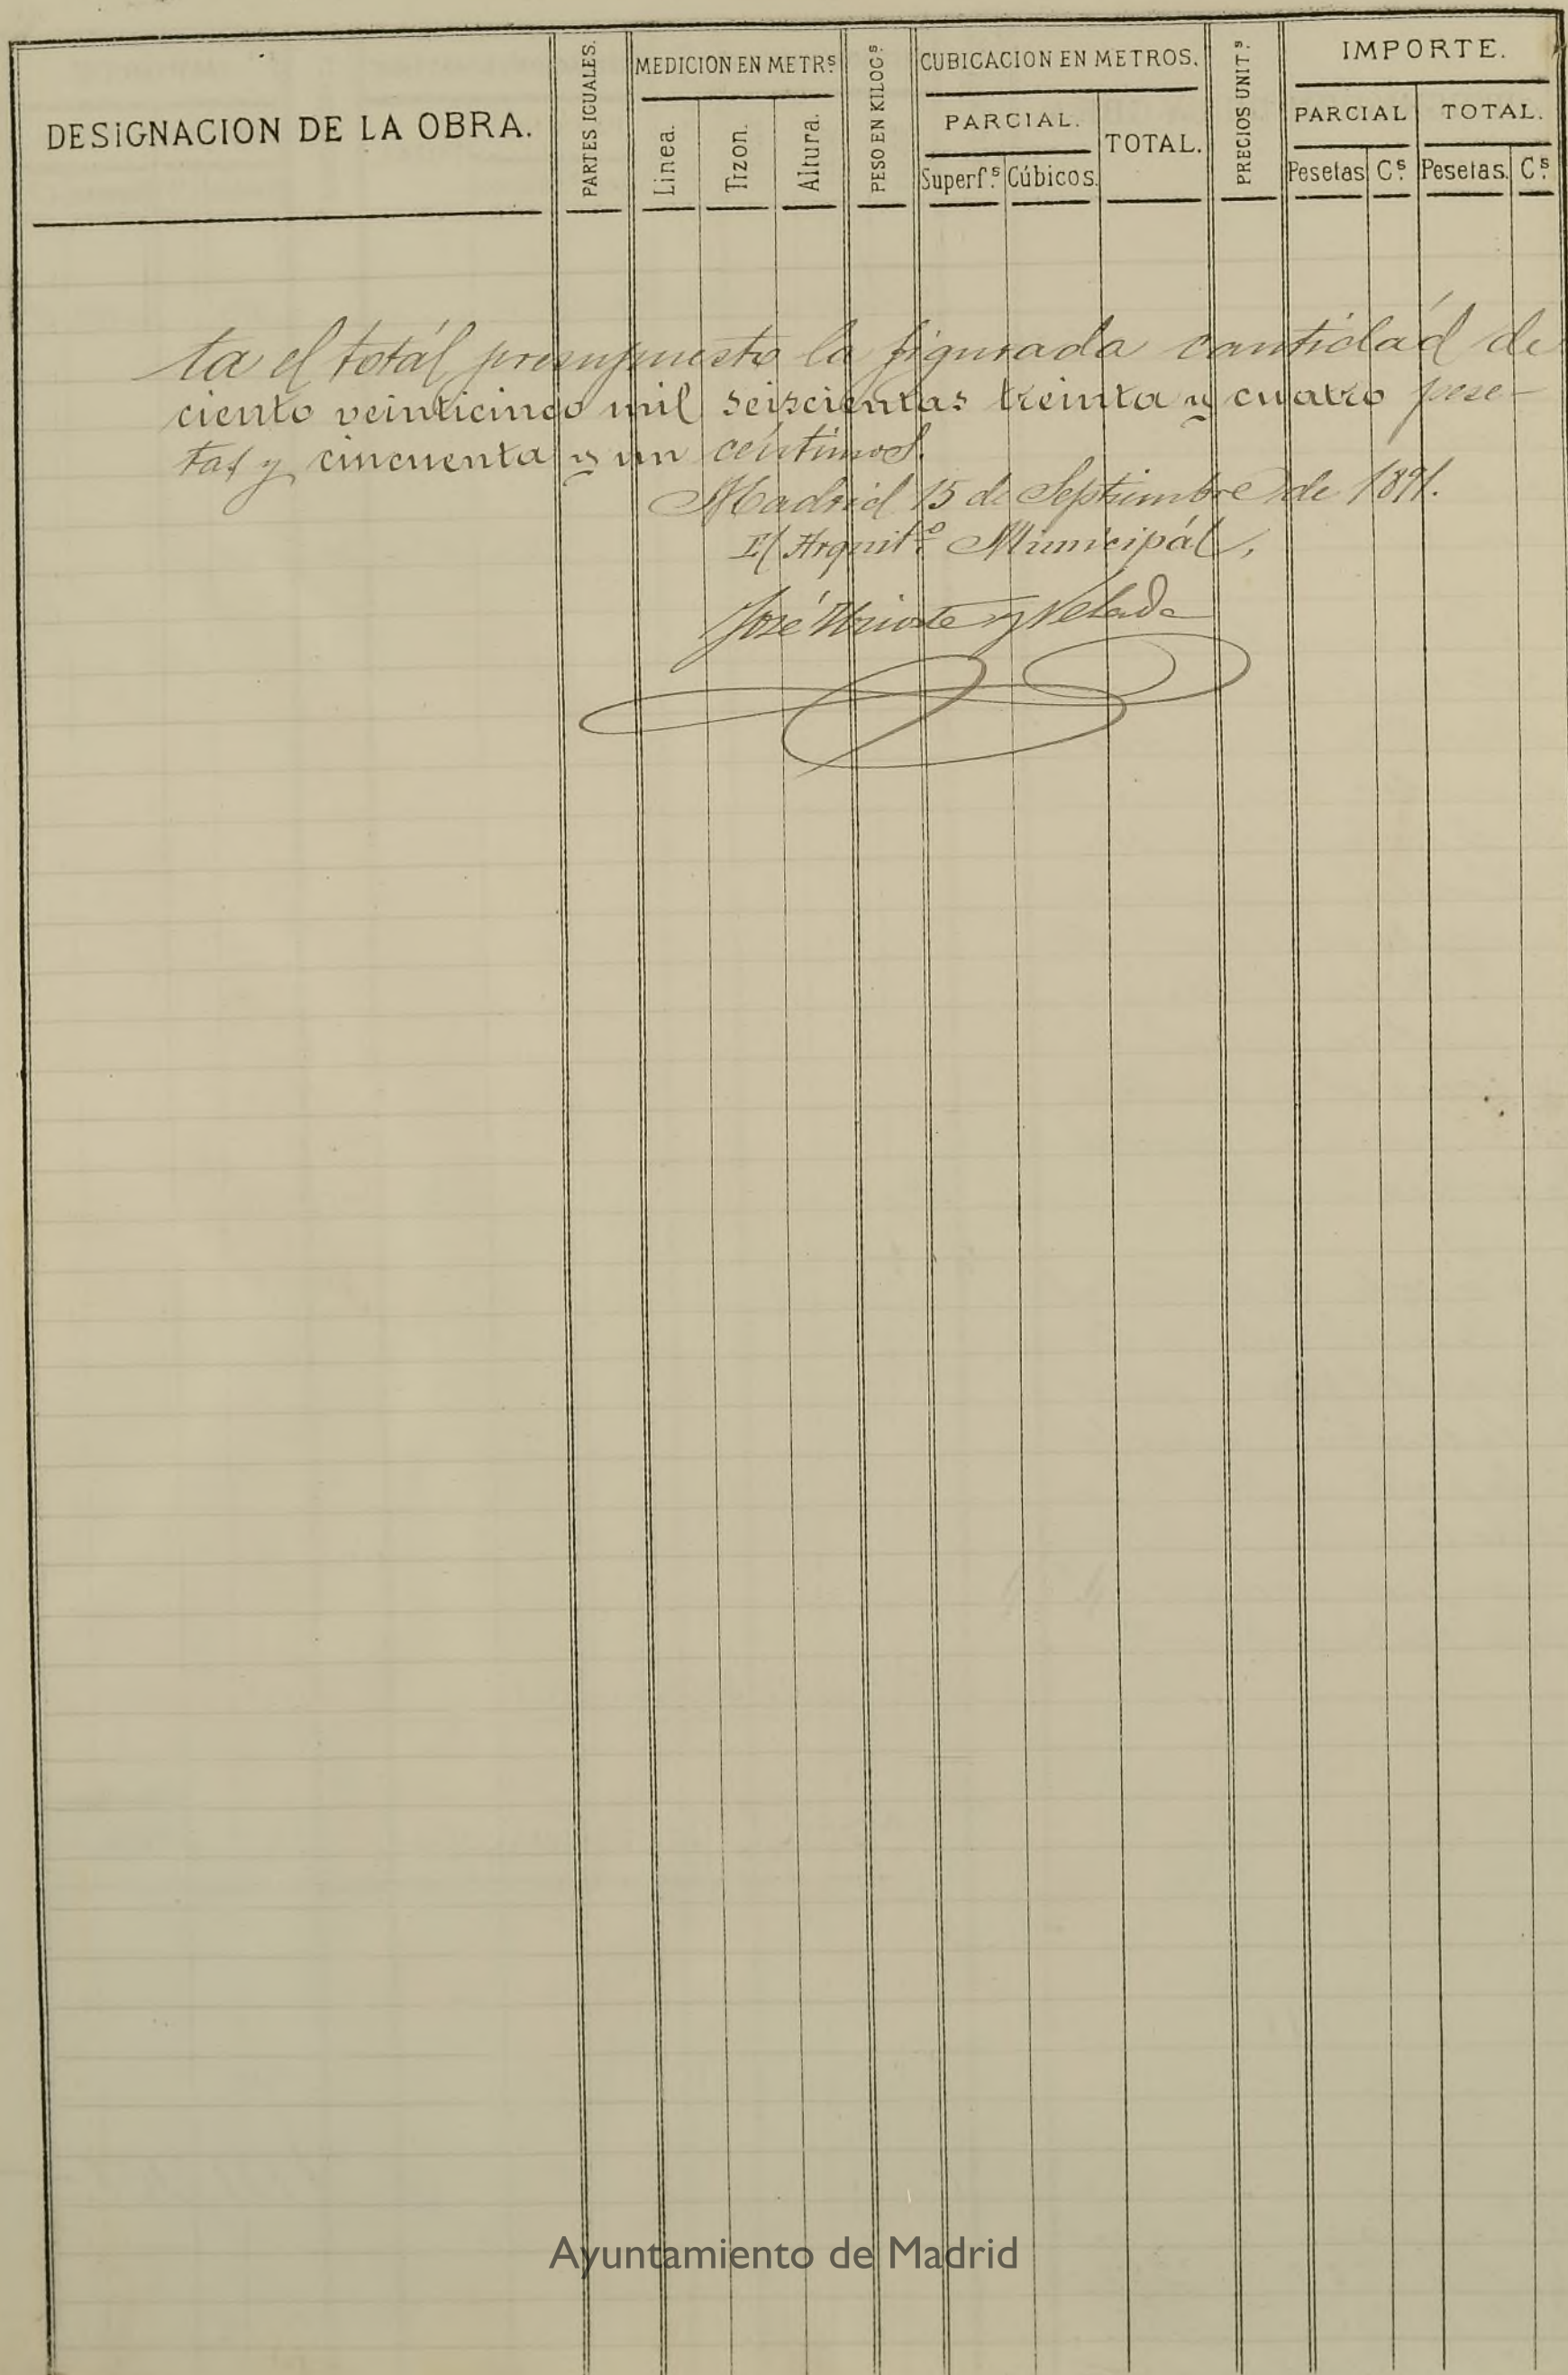 DESIGNACION DE LA OBRA.
PARTES IGUALES.
MEDICION EN METR.s
Linea.
Tizon.
Altura.
PESO EN KILOG.s
CUBICACION EN METROS.
PARCIAL.
Superf.s
Cúbicos.
TOTAL.
PRECIOS UNIT.s
IMPORTE.
PARCIAL
Pesetas
C.s
TOTAL.
Pesetas.
C.s
ta el totál presupuesto la figurada cantidád de
ciento veinticinco mil seiscientas treinta y cuatro pese-
tas y cincuenta y un céntimos.
Madrid 15 de Septiembre de 1891.
El Arquit.o Municipál,
José Urioste y Velada
Ayuntamiento de Madrid